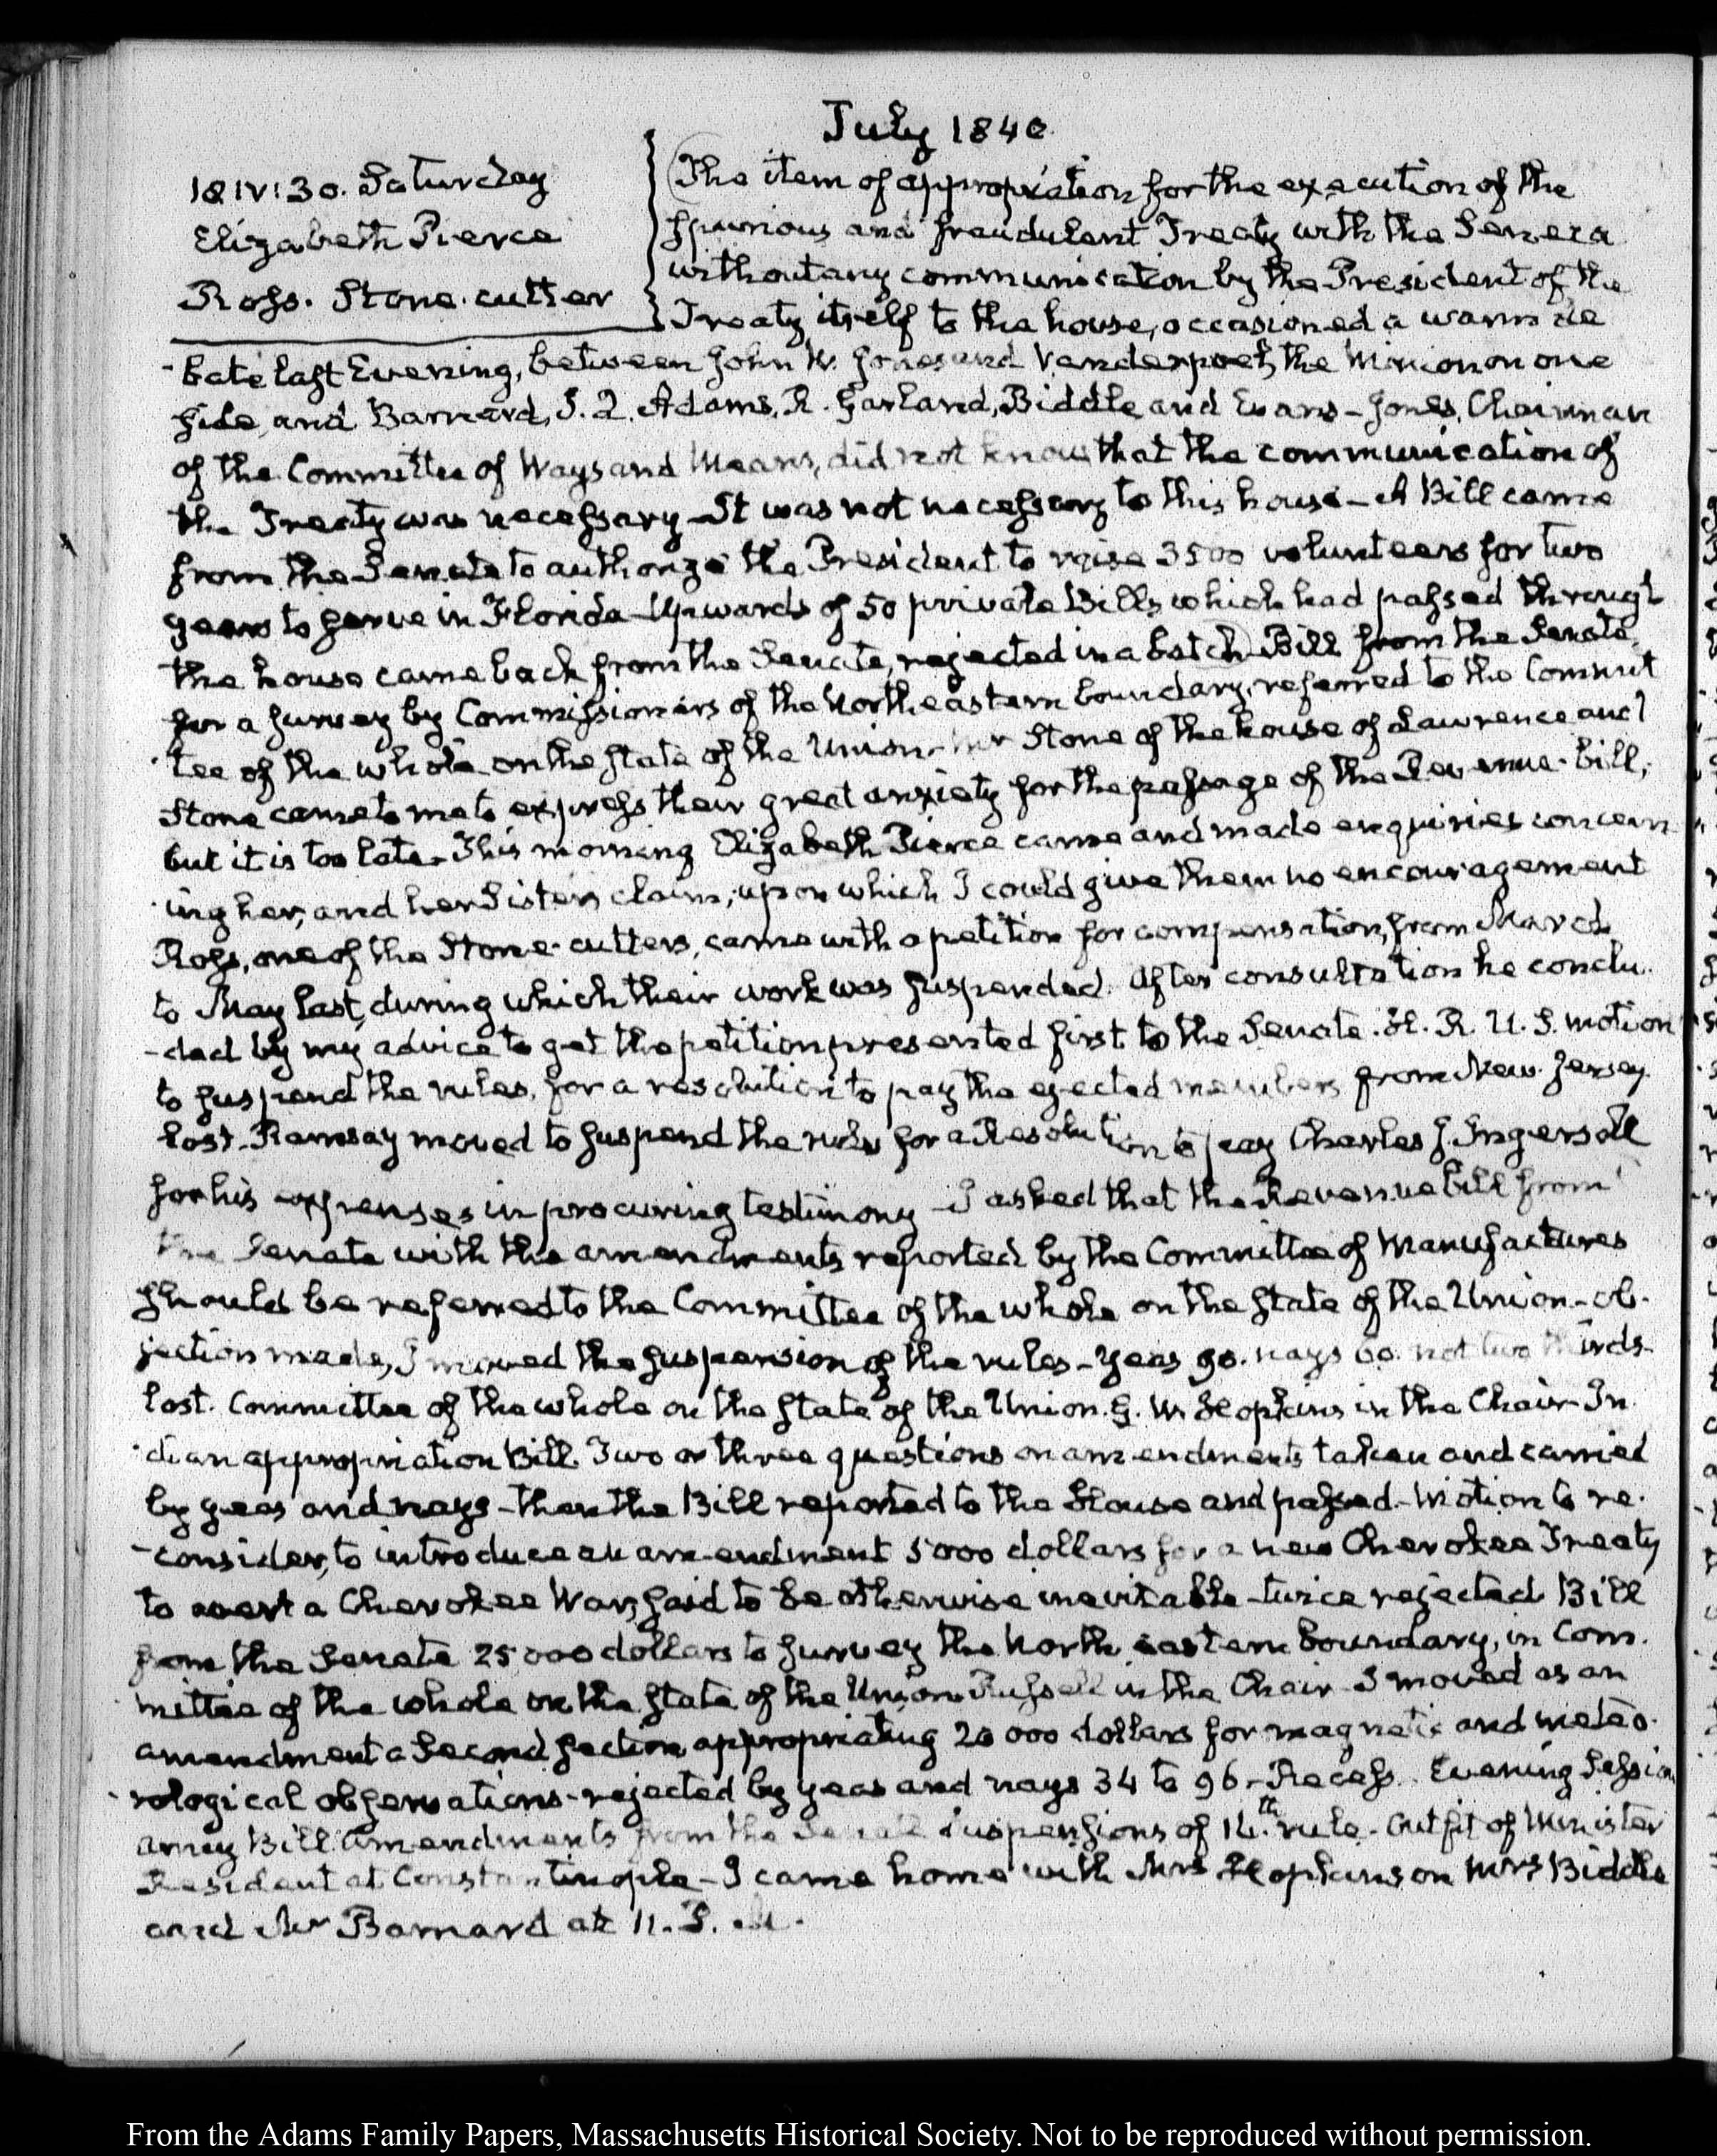 July 1840
18 IV:30. Saturday
Elizabeth Pierce
Ross. Stone-cutter
The item of appropriation for the execution of the
spurious and fraudulent Treaty with the Seneca
without any communication by the President of the
Treaty itself to the house, occasioned a warm de
-bate last Evening, between John W. Jones and Vanderpoel, the Minion on one
side, and Barnard, J. Q. Adams, R. Garland, Biddle and Evans - Jones, Chairman
of the Committee of Ways and Means, did not know that the communication of
the Treaty was necessary - It was not necessary to this house - A Bill came
from the Senate to authorize the President to raise 3500 volunteers for two
years to serve in Florida - Upwards of 50 private Bills which had passed through
the house came back from the Senate, rejected in a batch - Bill from the Senate
for a survey by Commissioners of the Northeastern boundary, referred to the Commit
-tee of the whole on the state of the Union - Mr Stone of the house of Lawrence and
Stone came to me to express their great anxiety for the passage of the Revenue-bill,
but it is too late. This morning Elizabeth Pierce came and made enquiries concern
-ing her, and her Sister's claim, upon which I could give them no encouragement
Ross, one of the Stone-cutters, came with a petition for compensation, from March
to May last, during which their work was suspended. After consultation he conclu-
-ded by my advice to get the petition presented first to the Senate. H. R. U. S. motion
to suspend the rules, for a resolution to pay the ejected members from New-Jersey.
lost - Ramsay moved to suspend the rules for a Resolution to pay Charles J. Ingersoll
for his expenses in procuring testimony - I asked that the Revenue bill from
the Senate with the amendments reported by the Committee of Manufactures
should be referred to the Committee of the whole on the state of the Union - ob-
jection made, I moved the suspension of the rules - Yeas 90. nays 60. not two thirds -
lost. Committee of the whole on the state of the Union. G. W. Hopkins in the Chair - In
-dian appropriation Bill. Two or three questions on amendments taken and carried
by yeas and nays - then the Bill reported to the House and passed - Motion to re-
-consider, to introduce an amendment 5000 dollars for a new Cherokee Treaty
to avert a Cherokee War, said to be otherwise inevitable - twice rejected Bill
from the Senate 25000 dollars to survey the North eastern boundary, in Com-
mittee of the whole on the state of the Union Russell in the Chair - I moved as an
amendment a Second section appropriating 20 000 dollars for magnetic and meteo-
-rological observations - rejected by yeas and nays 34 to 96 - Recess. Evening Session
army Bill amendments from the Senate suspensions of 16.th rule - Outfit of Minister
Resident at Constantinople - I came home with Mrs Hopkinson Mrs Biddle
and Mr Barnard at 11. P. M.
From the Adams Family Papers, Massachusetts Historical Society. Not to be reproduced without permission.